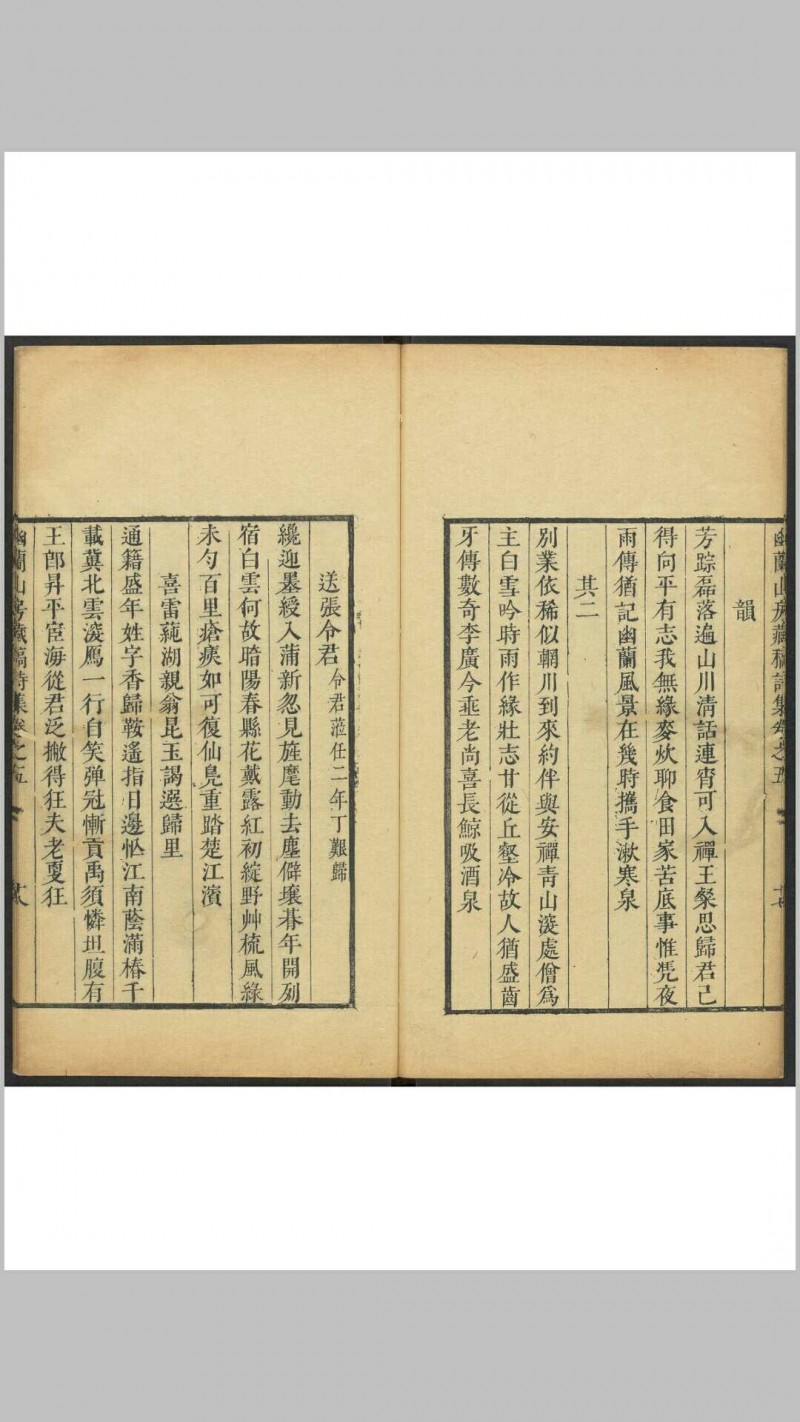 幽蘭山房藏稿詩集卷之五
韻
芳踪磊落遍山川清話連宵可入禪王粲思歸君已
得向平有志我無緣麥炊聊食田家苦底事惟凭夜
雨傳猶記幽蘭風景在幾時攜手漱寒泉
其二
別業依稀似輞川到來約伴與安禪青山深處僧爲
主白雪吟時雨作緣壯志甘從丘壑冷故人猶盛齒
牙傳數奇李廣今垂老尚喜長鯨吸酒泉
送張令君 令君蒞任二年丁艱歸
纔迎墨綬入蒲新忽見旌麾動去塵僻壤朞年開列
宿白雲何故暗陽春縣花戴露紅初綻野艸梳風綠
未勻百里瘡痍如可復仙鳧重踏楚江濱
喜雷蒓湖親翁昆玉謁選歸里
通籍盛年姓字香歸鞍遙指日邊忙江南蔭滿椿千
載冀北雲深鴈一行自笑彈冠慚貢禹須憐坦腹有
王郎昇平宦海從君泛撇得狂夫老更狂
幽蘭山房藏稿詩集卷之五